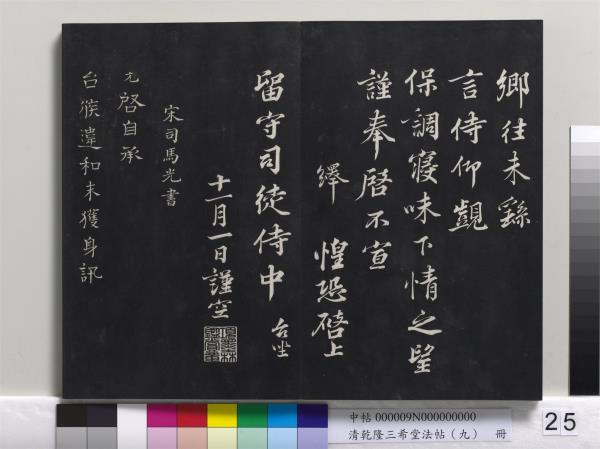 鄉往未繇
言侍仰觀
保調寢味下情之望
謹奉啓不宣
繹 惶恐啓上
留守司徒侍中 台坐
十一月一日謹空
宋司馬光書
光啓自承
台候違和未獲身訊
中帖 000009N000000000
清乾隆三希堂法帖（九） 冊
25